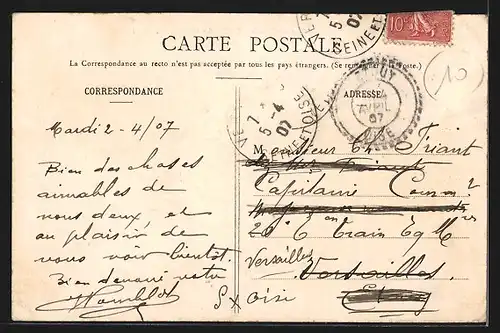 CARTE POSTALE
La Correspondance au recto n'est pas acceptée par tous les pays étrangers. (Se renseigner à la Poste.)
CORRESPONDANCE
ADRESSE
10c
5-4
07
SEINE ET OISE
AVRIL
07
OISE
(10)
Mardi 2-4/07
Bien des choses
aimables de
nous deux, et
au plaisir de
vous voir bientôt.
Bien dévoué votre
Monsieur Ch. Triant
Capitaine Comm
20e Con train Eq Mres
Versailles
Versailles
S x Oise